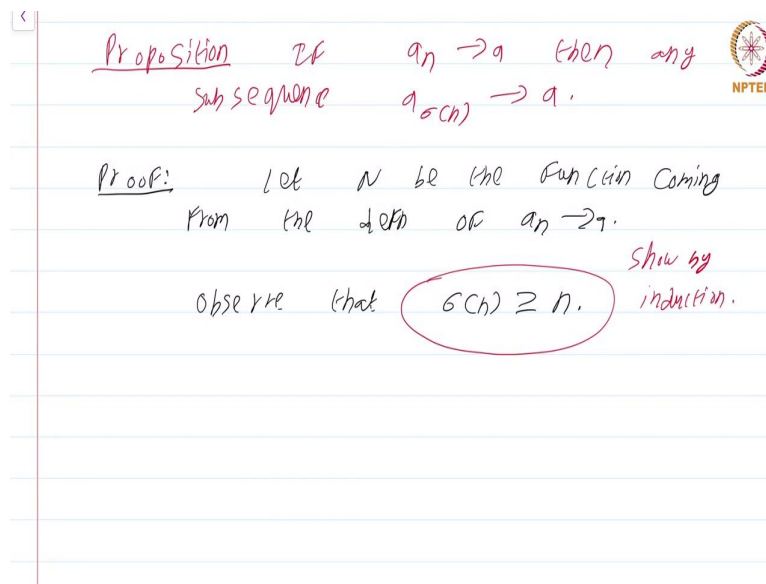 Proposition If aₙ → a then any
subsequence a_σ(n) → a.
NPTEL
Proof: Let N be the function coming
from the defn of aₙ → a.
Show by
observe that σ(n) ≥ n. induction.